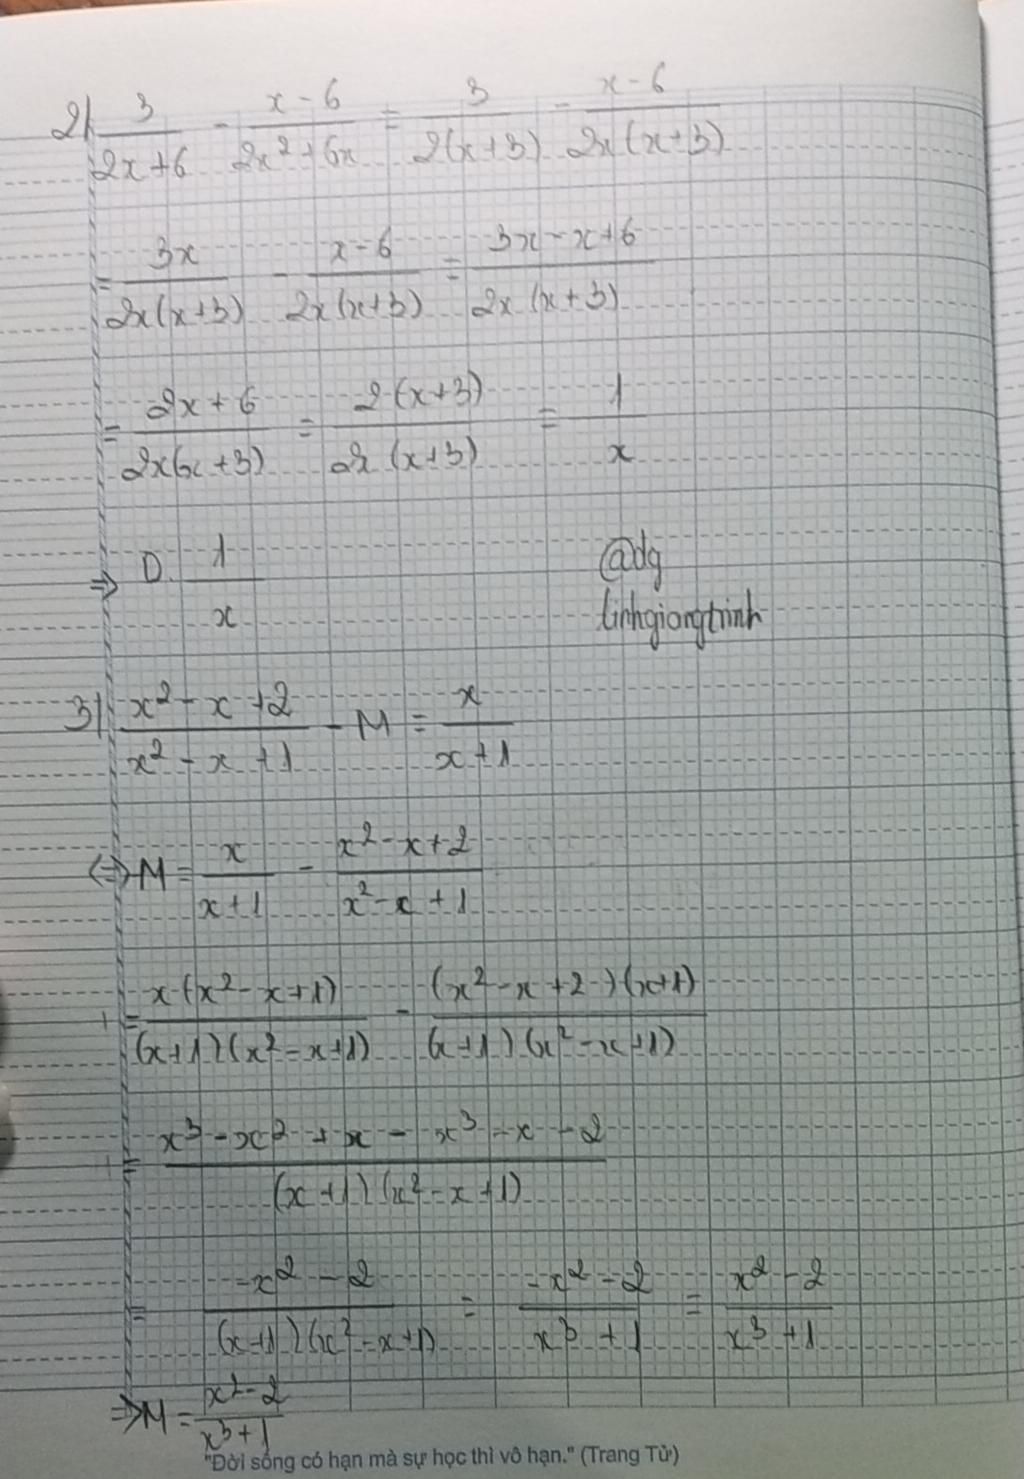 2) 3/(2x+6) - (x-6)/(2x²+6x) = 3/(2(x+3)) - (x-6)/(2x(x+3))
= 3x/(2x(x+3)) - (x-6)/(2x(x+3)) = (3x-x+6)/(2x(x+3))
= (2x+6)/(2x(x+3)) = 2(x+3)/(2x(x+3)) = 1/x
⇒ D. 1/x
@dg
linhgiongtrinh
3) (x²-x+2)/(x²-x+1) - M = x/(x+1)
⇔ M = x/(x+1) - (x²-x+2)/(x²-x+1)
= x(x²-x+1)/((x+1)(x²-x+1)) - (x²-x+2)(x+1)/((x+1)(x²-x+1))
= (x³-x²+x-x³-x-2)/((x+1)(x²-x+1))
= (-x²-2)/((x+1)(x²-x+1)) = (-x²-2)/(x³+1) = (x²-2)/(x³+1)
⇒ M = (x²-2)/(x³+1)
"Đời sống có hạn mà sự học thì vô hạn." (Trang Tử)